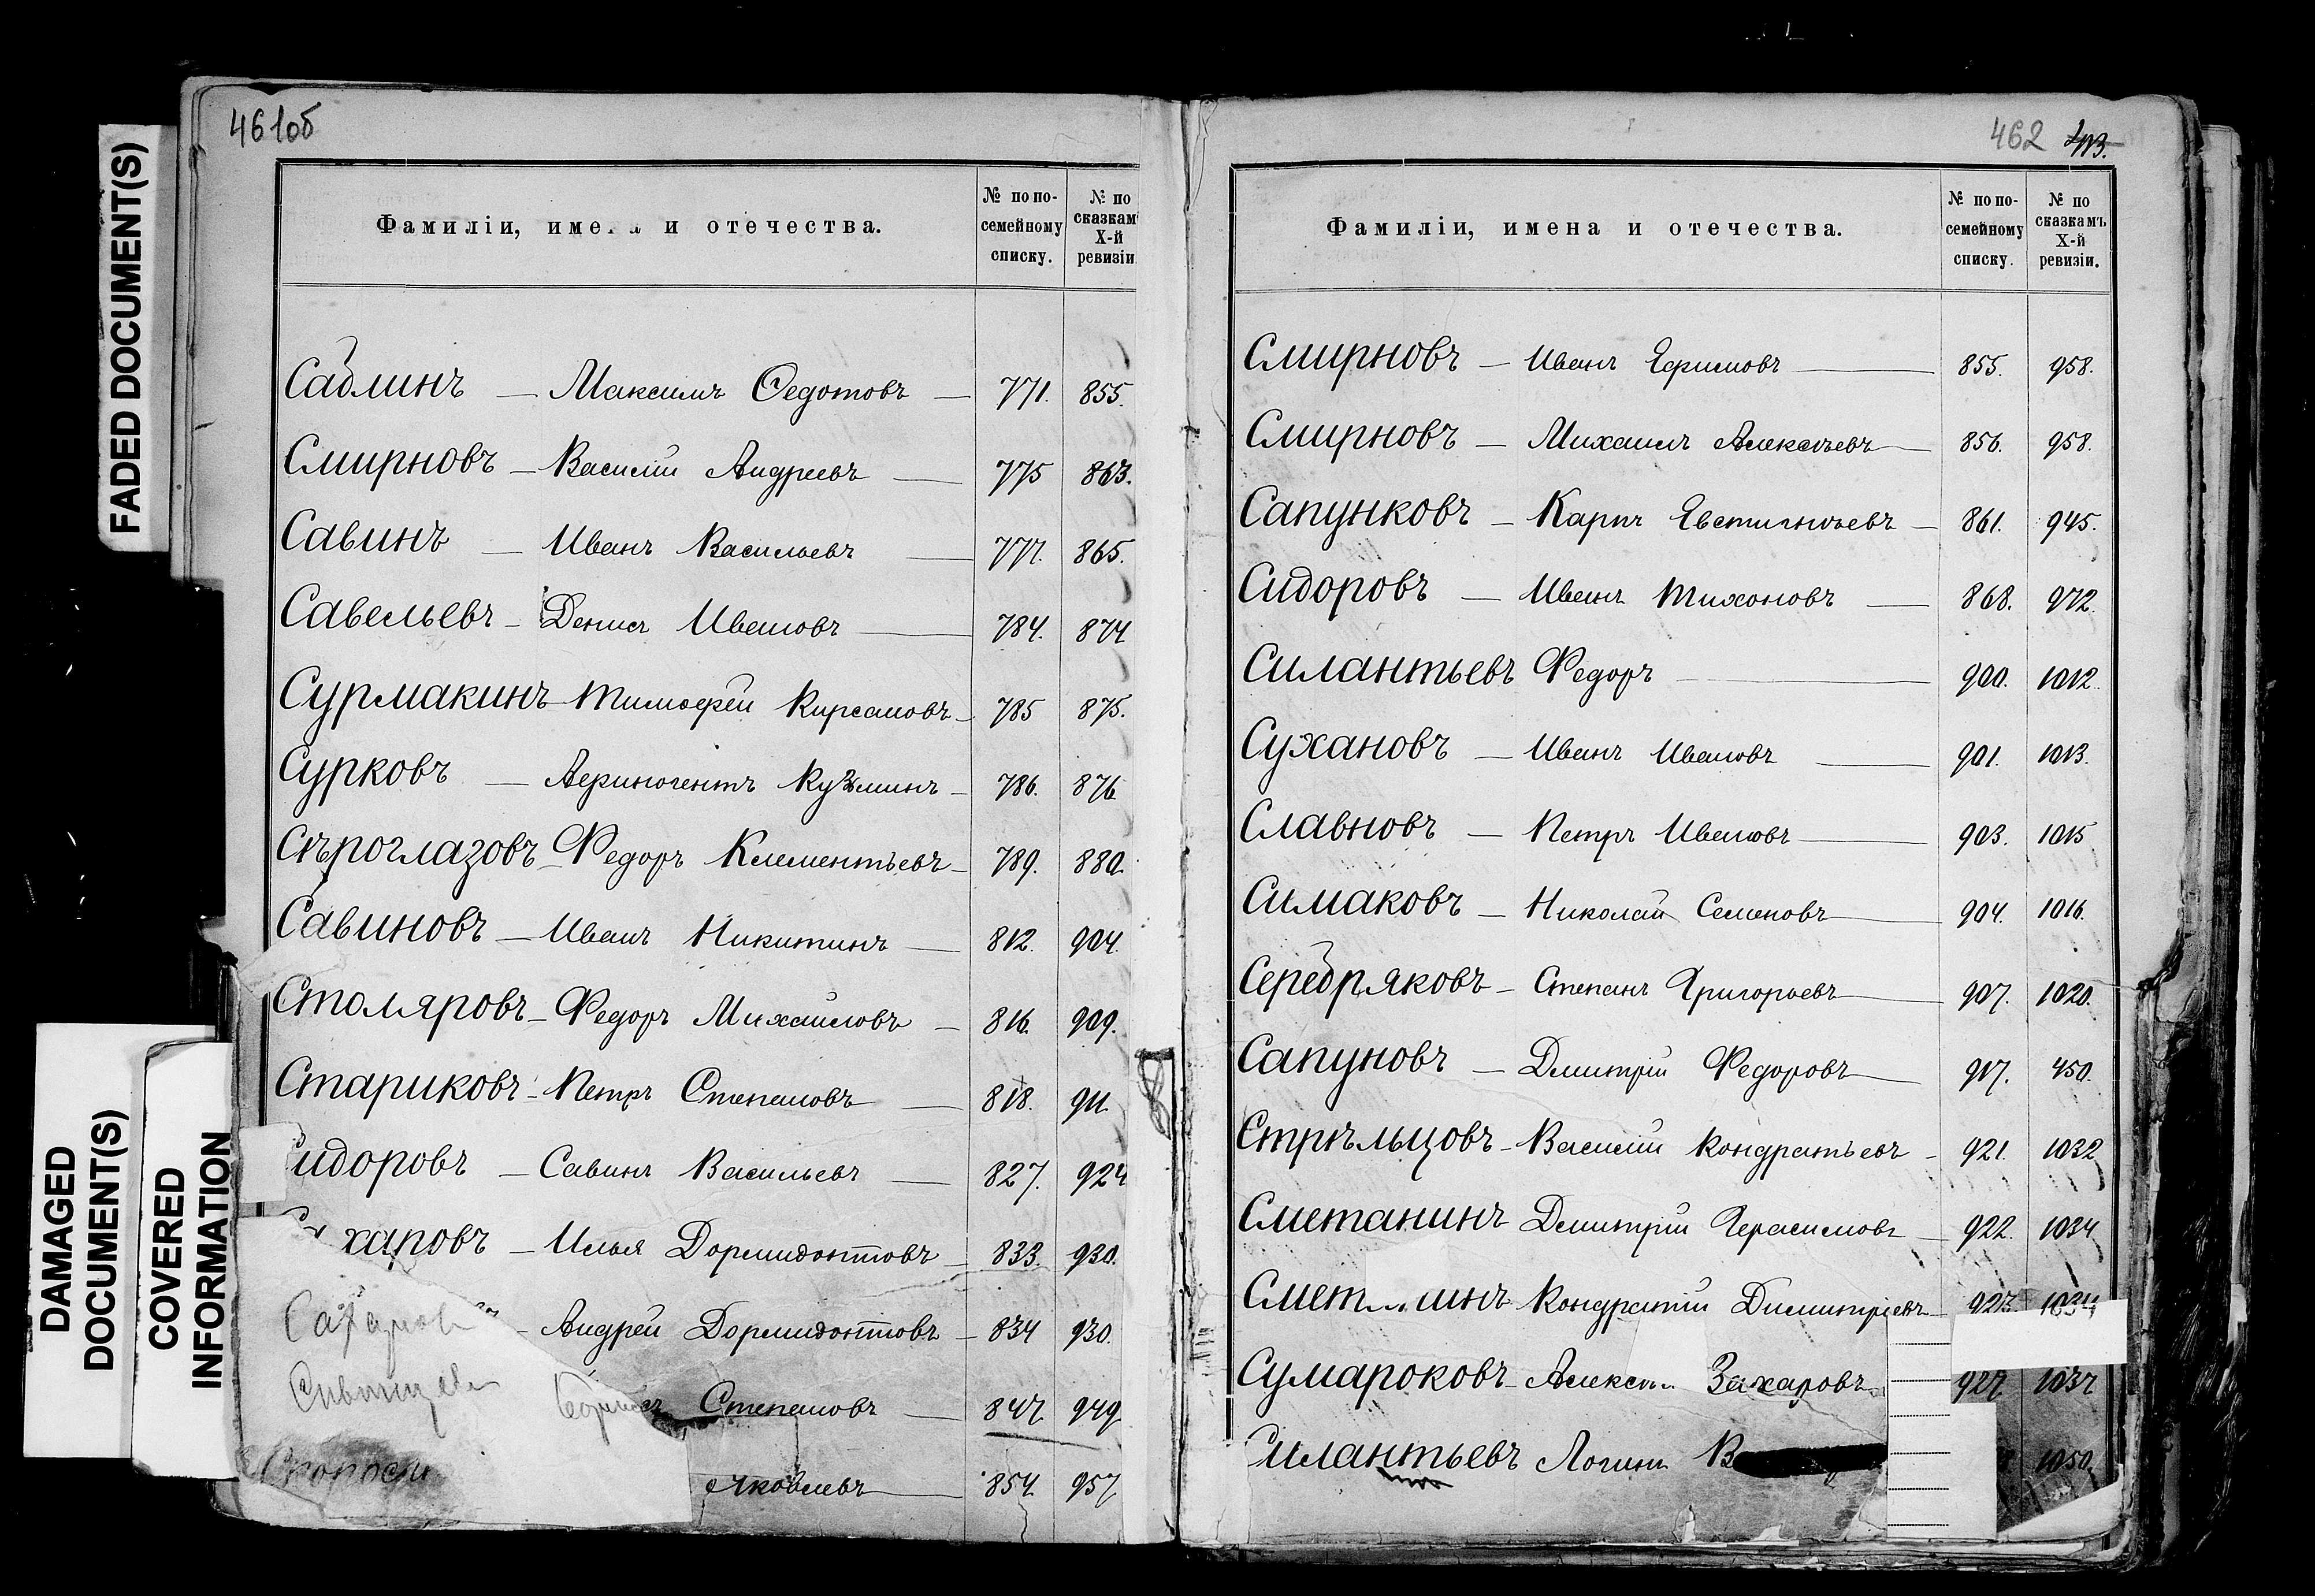 FADED DOCUMENT(S)
DAMAGED
DOCUMENT(S)
COVERED
INFORMATION
461об
Фамиліи, имена и отечества.
№ по по-
семейному
списку.
№ по
сказкам
X-й
ревизіи
Садлинъ — Максимъ Федотовъ — 771. 855.
Смирновъ — Василій Андреевъ — 775 863.
Савинъ — Иванъ Васильевъ — 777. 865.
Савельевъ — Денисъ Ивановъ — 784. 874
Сурмакинъ Тимофей Кирсановъ — 785 875.
Сурковъ — Кузминъ — 786. 876
Сѣроглазовъ — Федоръ Клементьевъ — 789. 880.
Савиновъ — Иванъ Никитинъ — 812. 904.
Столяровъ — Федоръ Михайловъ — 816. 909.
Стариковъ — Петръ Степановъ — 818. 911.
идоровъ — Савинъ Васильевъ — 827. 924
харовъ — Илья Дормидонтовъ — 833. 930.
Сахаров — Андрей Дормидонтовъ — 834 930.
Степановъ — 847. 949
Яковлевъ — 854. 957
462
Фамиліи, имена и отечества.
№ по по-
семейному
списку.
№ по
сказкамъ
X-й
ревизіи.
Смирновъ — Иванъ Ефимовъ — 855. 958.
Смирновъ — Михаилъ Алексѣевъ — 856. 958.
Сапунковъ — Карпъ Евстигнѣевъ — 861. 945.
Сидоровъ — Иванъ Тихоновъ — 868. 972.
Силантьевъ Федоръ — 900. 1012.
Сухановъ — Иванъ Ивановъ — 901. 1013.
Славновъ — Петръ Ивановъ — 903. 1015
Симаковъ — Николай Семеновъ — 904. 1016.
Серебряковъ — Степанъ Григорьевъ — 907. 1020.
Сапуновъ — Дмитрій Федоровъ — 917. 450.
Стрѣльцовъ — Василій Кондратьевъ — 921. 1032
Сметанинъ Дмитрій Герасимовъ — 922. 1034
Смет инъ Кондратій Димитріевъ — 923. 1034
Сумароковъ — Алексѣй Захаровъ — 927 1037
Силантьевъ Логинъ В 8 1050